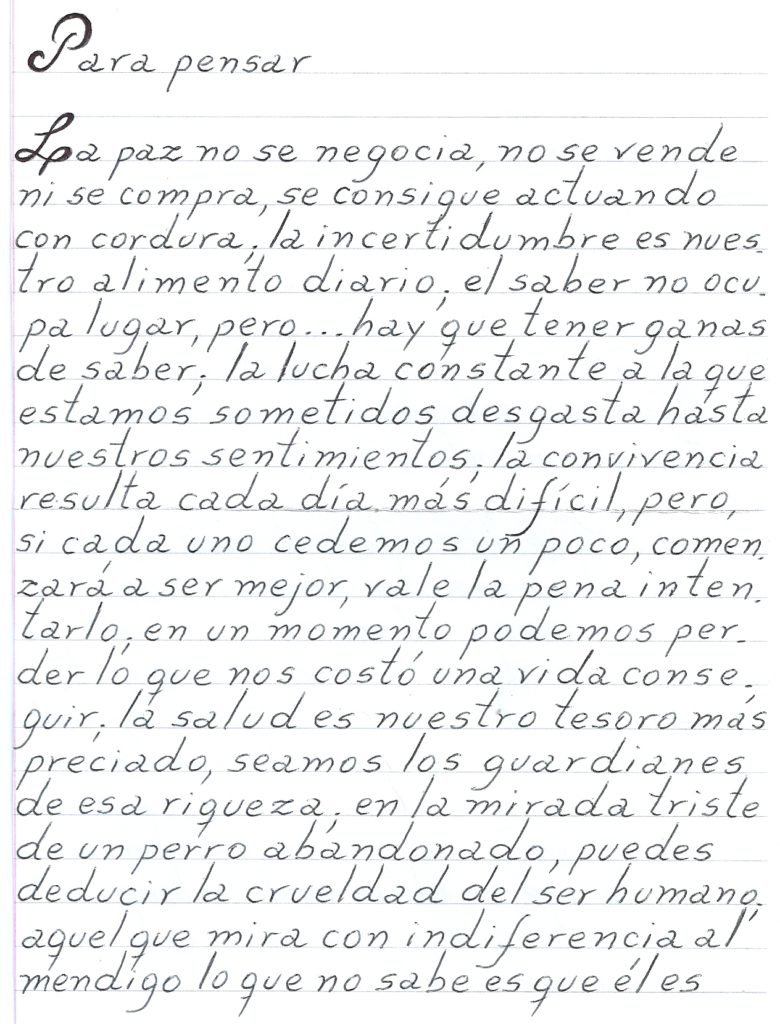 Para pensar
La paz no se negocia, no se vende
ni se compra, se consigue actuando
con cordura; la incertidumbre es nues-
tro alimento diario; el saber no ocu-
pa lugar, pero... hay que tener ganas
de saber; la lucha constante a la que
estamos sometidos desgasta hasta
nuestros sentimientos; la convivencia
resulta cada día más difícil, pero,
si cada uno cedemos un poco, comen-
zará a ser mejor, vale la pena inten-
tarlo; en un momento podemos per-
der lo que nos costó una vida conse-
guir; la salud es nuestro tesoro más
preciado, seamos los guardianes
de esa riqueza; en la mirada triste
de un perro abandonado, puedes
deducir la crueldad del ser humano;
aquel que mira con indiferencia al
mendigo lo que no sabe es que él es